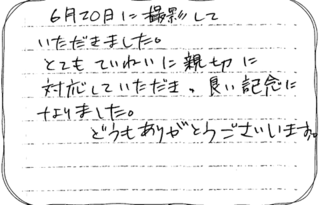 6月20日に撮影して
いただきました。
とてもていねいに親切に
対応していただき、良い記念に
なりました。
どうもありがとうございます。